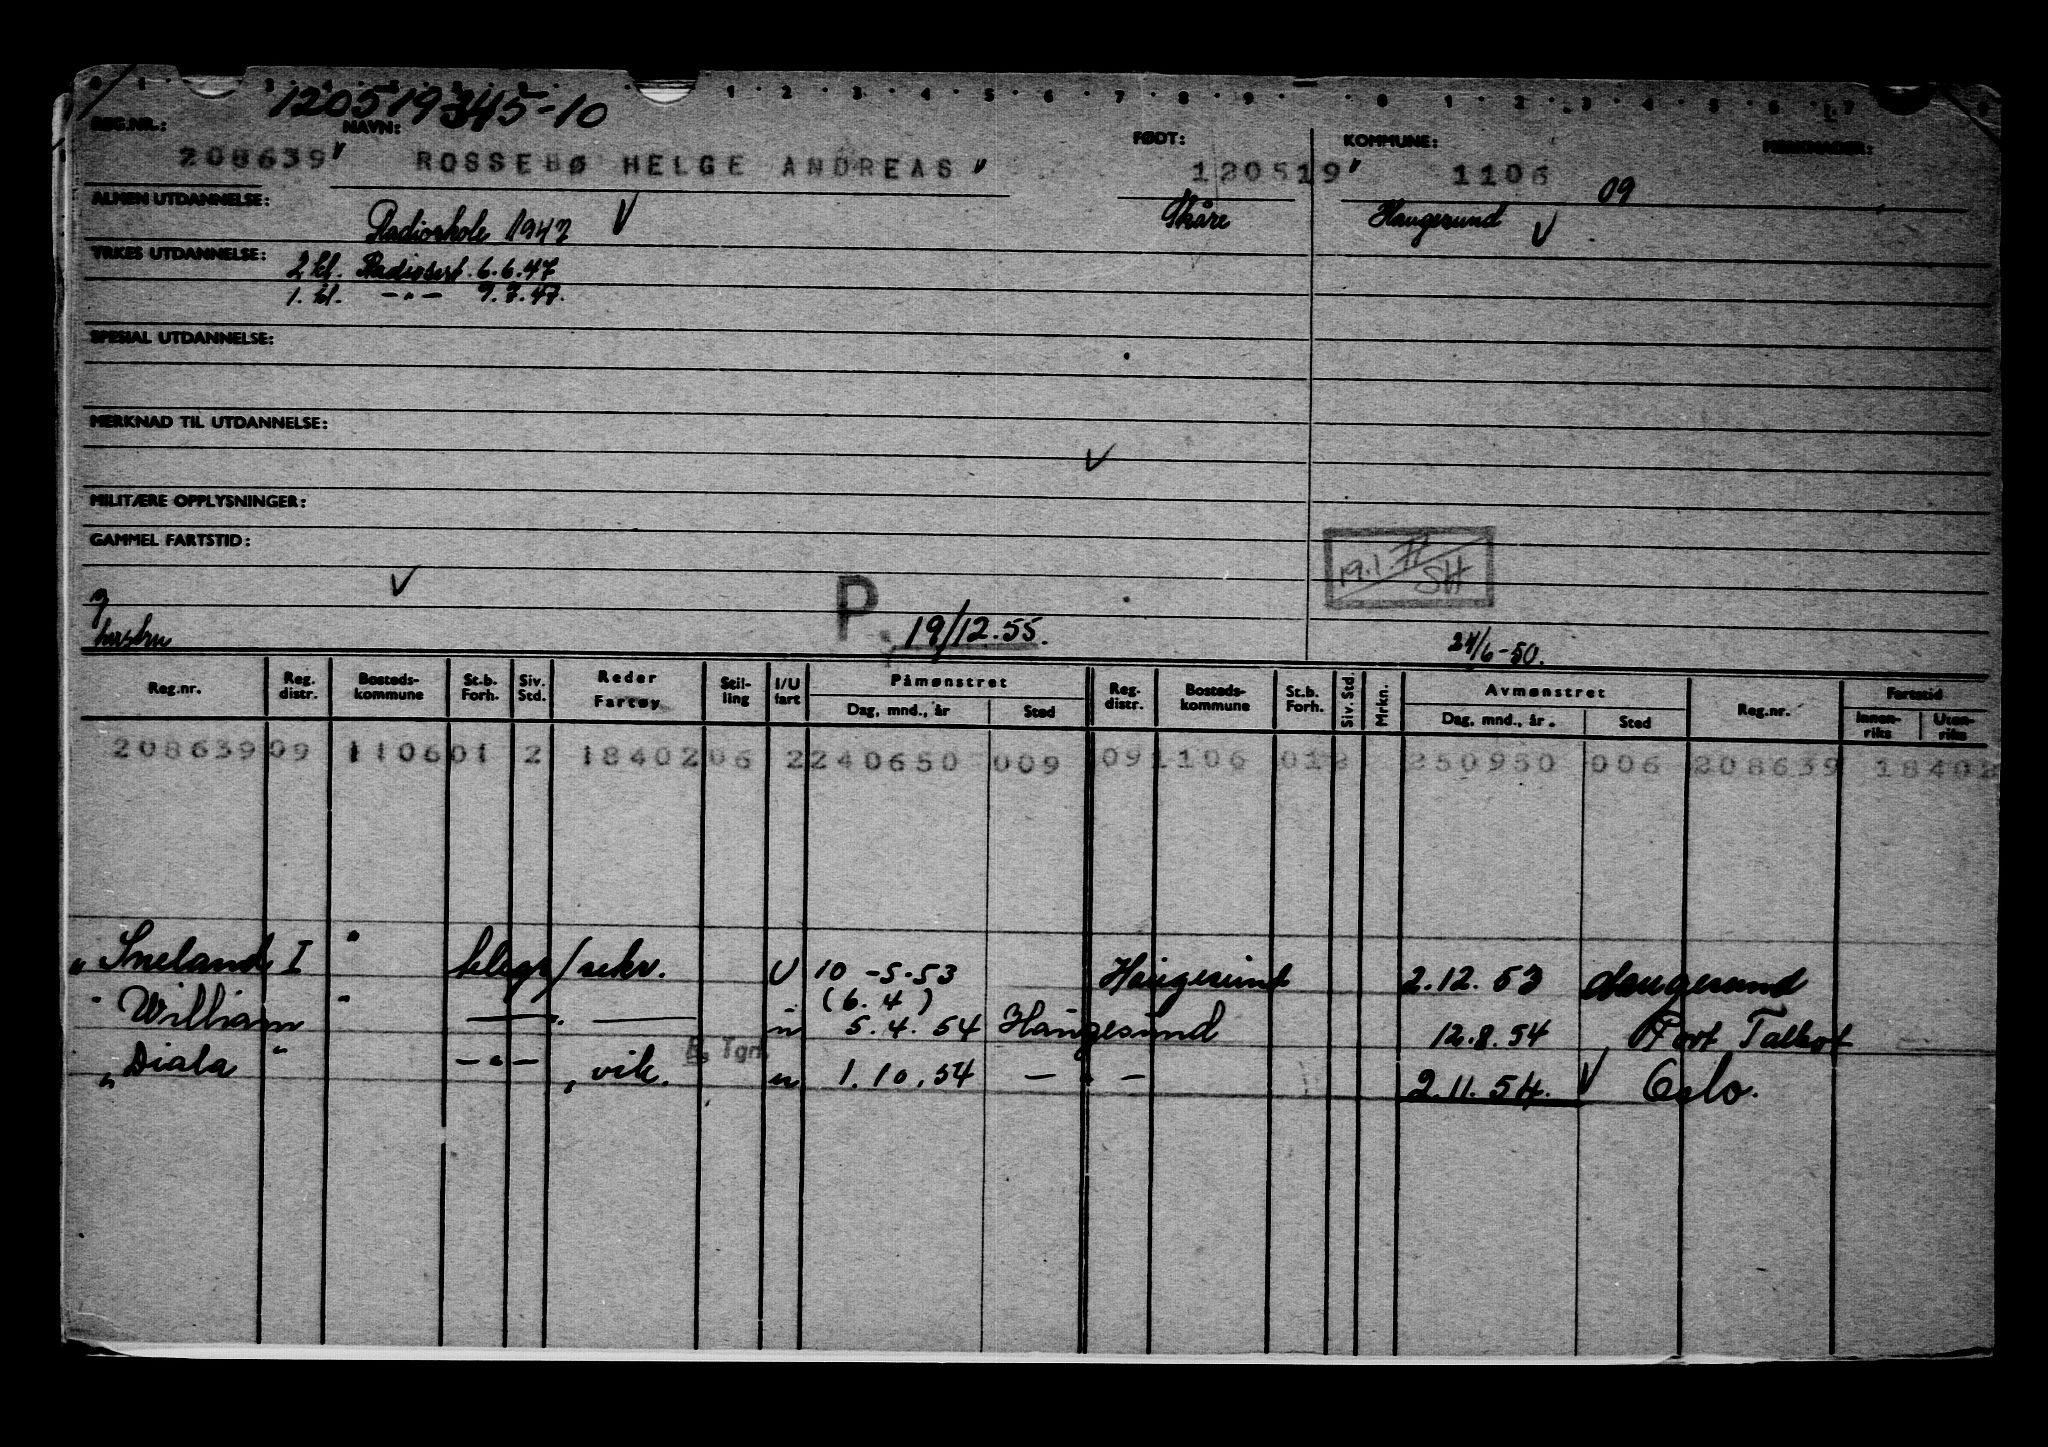 120519345-10
REG.NR.: NAVN: FØDT: KOMMUNE: MERKNADER:
208639 ROSSEBØ HELGE ANDREAS 120519 1106 09
ALMEN UTDANNELSE: Radioskole 1947 Skåre Haugesund
YRKES UTDANNELSE: 2 kl. Radiosert. 6.6.47
1. kl. -"- 9.7.47.
SPESIAL UTDANNELSE:
MERKNAD TIL UTDANNELSE:
MILITÆRE OPPLYSNINGER:
GAMMEL FARTSTID:
19.1. SH
g
hustru P. 19/12.55. 24/6-50.
Reg.nr. Reg. distr. Bosteds-kommune St.b. Forh. Siv. Std. Reder Fartøy Stil-ling I/U fart Påmønstret Dag, mnd., år Sted Reg. distr. Bosteds-kommune St.b. Forh. Siv. Std. Mrkn. Avmønstret Dag, mnd., år. Sted Reg.nr. Fartstid Innen-riks Uten-riks
208639 09 1106 01 2 18402 06 2 240650 009 09 1106 01 2 250950 006 208639 18402
" Smeland I " telegr/sekr. U 10-5-53 Haugesund 2.12.53 Haugesund
(6.4)
" William " — — u 5.4.54 Haugesund 12.8.54 Port Talbot
E. Tgr.
" Diala " -"- , vik. u 1.10.54 -"- 2.11.54. Oslo.